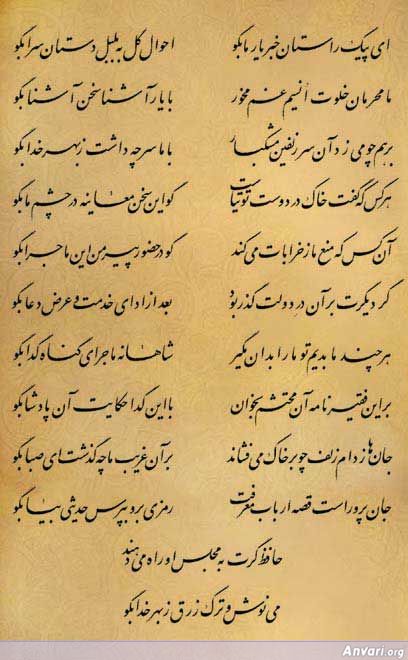 ای پیک راستان خبر یار ما بگو احوال گل به بلبل دستان سرا بگو
ما محرمان خلوت انسیم غم مخور با یار آشنا سخن آشنا بگو
برهم چو می زد آن سر زلفین مشکبار با ما سر چه داشت ز بهر خدا بگو
هر کس که گفت خاک در دوست توتیاست گو این سخن معاینه در چشم ما بگو
آن کس که منع ما ز خرابات می کند گو در حضور پیر من این ماجرا بگو
گر دیگرت بر آن در دولت گذر بود بعد از ادای خدمت و عرض دعا بگو
هر چند ما بدیم تو ما را بدان مگیر شاهانه ماجرای گناه گدا بگو
بر این فقیر نامه آن محتشم بخوان با این گدا حکایت آن پادشا بگو
جان ها ز دام زلف چو بر خاک می فشاند بر آن غریب ما چه گذشت ای صبا بگو
جان پرور است قصه ارباب معرفت رمزی برو بپرس حدیثی بیا بگو
حافظ گرت به مجلس او راه می دهند
می نوش و ترک زرق ز بهر خدا بگو
Anvari.org